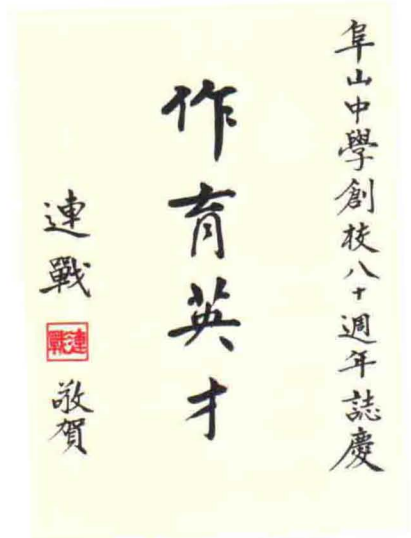 阜山中學創校八十週年誌慶
作育英才
連戰
連戰
敬賀